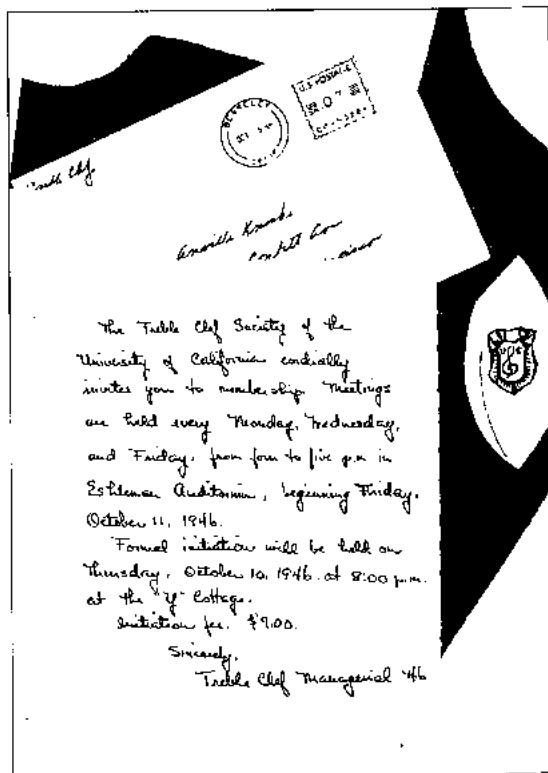 BERKELEY
OCT
U.S. POSTAGE
Treble Clef
The Treble Clef Society of the
University of California cordially
invites you to membership. Meetings
are held every Monday, Wednesday,
and Friday, from four to five p.m in
Eshleman Auditorium, beginning Friday,
October 11, 1946.
Formal initiation will be held on
Thursday, October 10, 1946. at 8:00 p.m.
at the "Y" Cottage.
Initiation fee. $9.00.
Sincerely,
Treble Clef Managerial '46